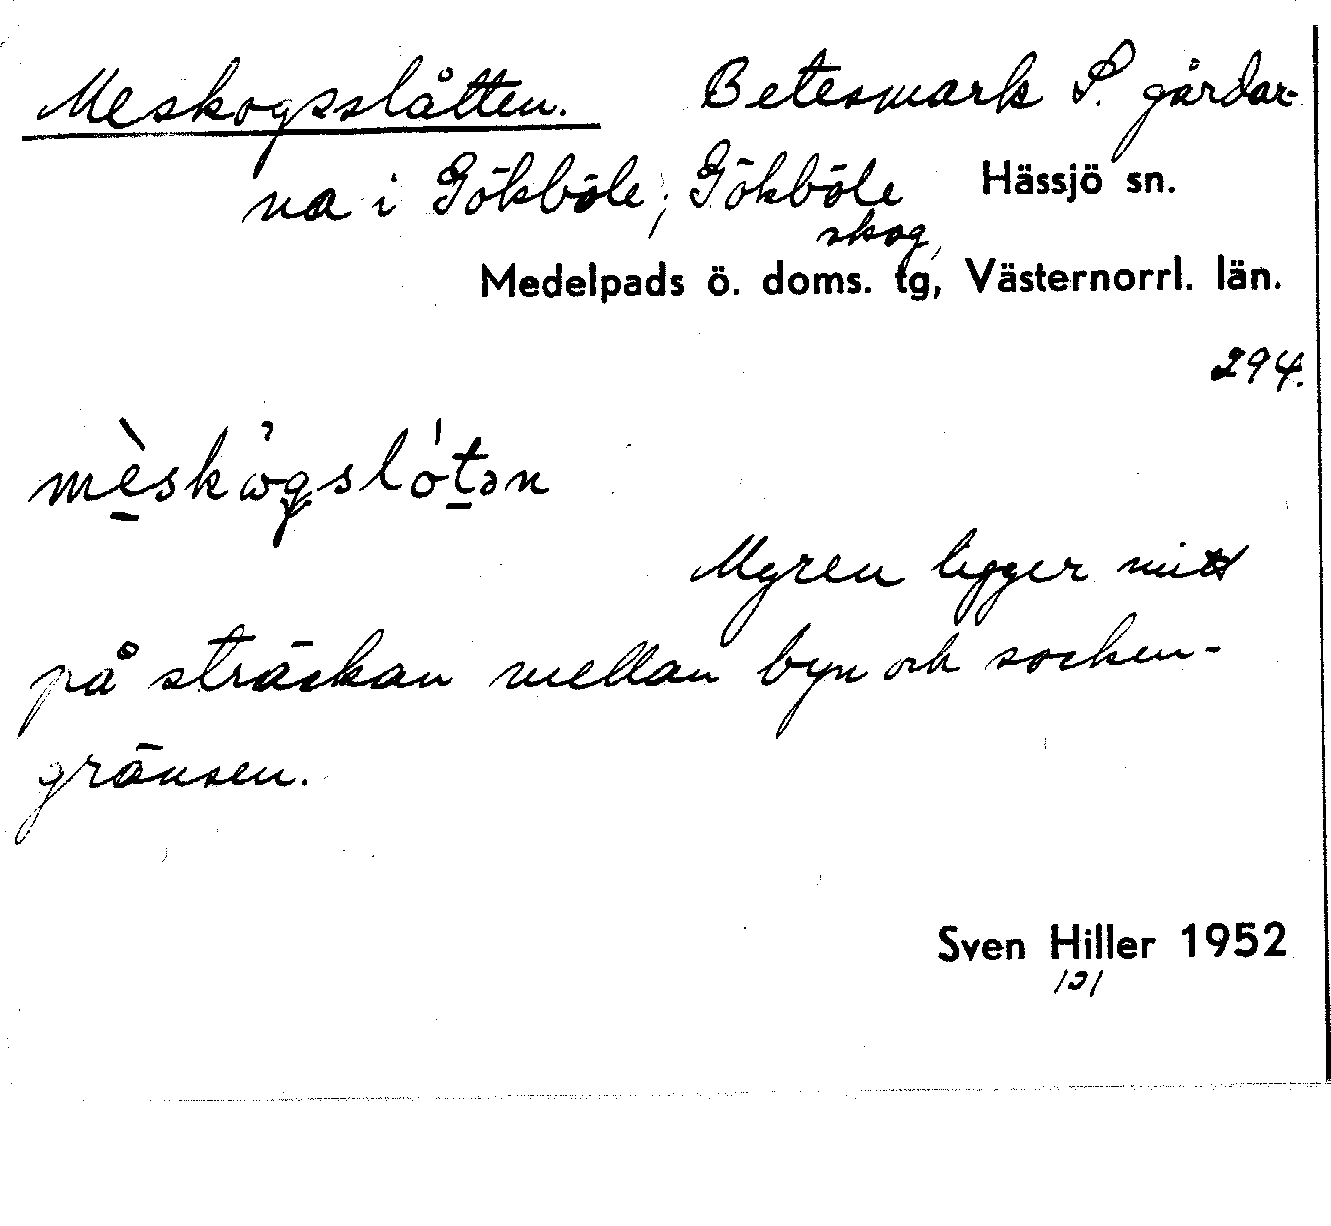 Meskogsslåtten. Betesmark S. gårdar-
na i Gökböle, Gökböle Hässjö sn.
skog,
Medelpads ö. doms. tg, Västernorrl. län.
294.
Myren ligger mitt
på sträckan mellan byn och socken-
gränsen.
Sven Hiller 1952